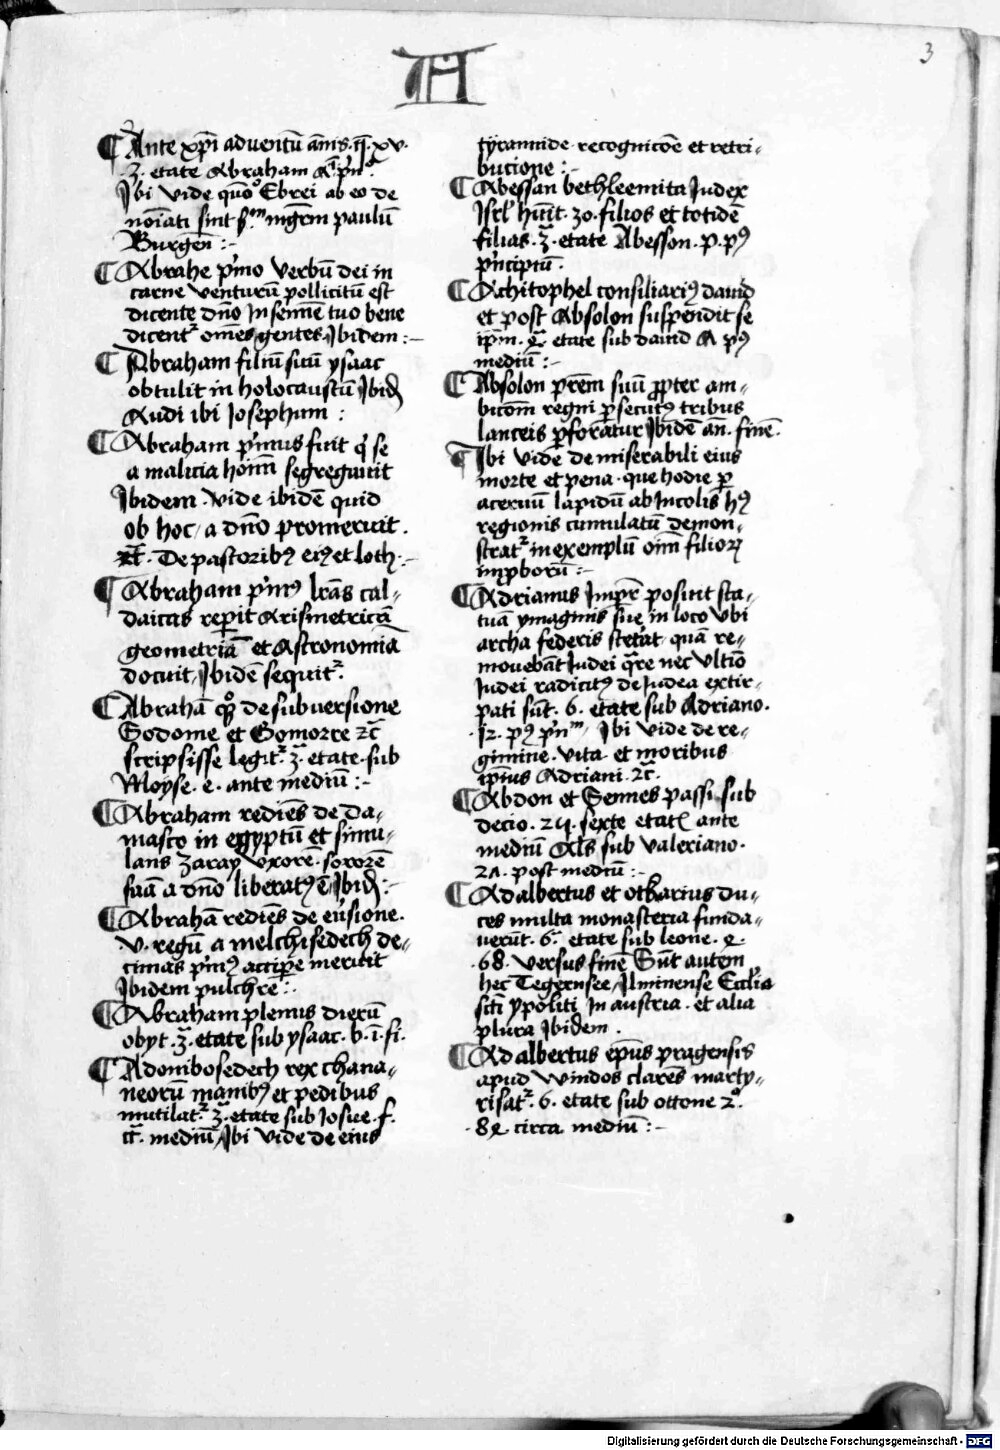 3
A
¶ Ante xp̄i adventū ān̄is . ii̅ . xv .
.3. etate Abraham A p̄n̊.
Ibi vide quō Ebrei ab eo de
noīati sint s.m mgr̄m paulū
Burgen̄ :-
¶ Abrahe p'mo verbū dei in
carne venturū pollicitū est
dicente dn̄o In semīe tuo bene
dicentr omēs gentes Ibidem :-
¶ Abraham filiū suū ysaac
obtulit in holocaustū Ibid̄
Audi ibi Iosephum :
¶ Abraham p'mus fuit q' se
a malicia hoīm segregauit
Ibidem . vide ibidē quid
ob hoc / a dn̄o promeruit .
⁊c̄. De pastoribꝰ eiꝰ et loth :-
¶ Abraham p'mꝰ lrās cal-
daicas rep̄it Arismetricā
geometriā et Astronomiā
docuit , Ibidē sequitr.
¶ Abrahā qꝫ de subuersione
Sodome et Gomorre ⁊c̄
scripsisse legitr . 3ᵃ. etate . sub
Moyse . e . ante mediū :-
¶ Abraham rediēs de Da-
masco in egyptū et simu-
lans Zaray vxorē . sororē
suā a dn̄o liberatꝰ ē Ibid̄ :-
¶ Abrahā rediēs de eūsione .
.v. regū a melchisedech de-
cimas p'mꝰ accip̄e meruit
Ibidem pulchre :.
¶ Abraham plenus dierū
obyt . 3ᵃ. etate sub ysaac . b . i . fi .
¶ Adonibosedech rex chana-
neorū manibꝰ et pedibus
mutilatr . 3ᵃ. etate sub Iosue . f .
cc̄. mediū , Ibi vide de eius
tyrannide recognicōe et retri-
bucione :-
¶ Abessan bethleemita Iudex
Isrl' hūit . 30 . filios et totidē
filias . 3ᵃ. etate Abesson . p . pꝰ
p'ncipiū .
¶ Achitophel consiliariꝰ dauid
et post Absolon suspendit se
ip̄m . 4ᵃ. etate sub dauid A pꝰ
mediū :-
¶ Absolon pr̄em suū ꝓpter am-
bicōm regni ꝑsecutꝰ tribus
lanceis ꝑforatur Ibidē an̄ . finē .
¶ Ibi vide de miserabili eius
morte et pena . que hodie ꝑ
aceruū lapidū ab Incolis hꝰ
regionis cumulatū demon-
stratr in exemplū oīm filiorꝝ
imꝓborū :-
¶ Adrianus Impr̄ posuit sta-
tuā ymaginis sue in loco vbi
archa federis steterat . quā re-
mouebāt Iudei q̄re nec vltio
Iudei radicitꝰ de Iudea extir-
pati sūt . 6 . etate sub Adriano .
.12. pꝰ p'nm / Ibi vide de re-
gimine . vita . et moribus
ip̄ius Adriani . ⁊c̄ .
¶ Abdon et Sennes passi sub
decio . 24 . sexte etatꝭ ante
mediū Als sub valeriano .
21 . post mediū :-
¶ Adalbertus et otkarius du-
ces multa monasteria funda-
uerūt . 6ᵃ. etate sub leone . 4 .
.68. versus finē Sūt autem
hec Tegernsee , Ilminense Ecc̄lia
sc̄ti ypoliti In austria . et alia
plura Ibidem .
¶ Adalbertus ep̄us pragensis
apud windos clarēs marty-
risatr . 6 . etate sub ottone 2º.
.84 circa mediū :-
Digitalisierung gefördert durch die Deutsche Forschungsgemeinschaft - DFG